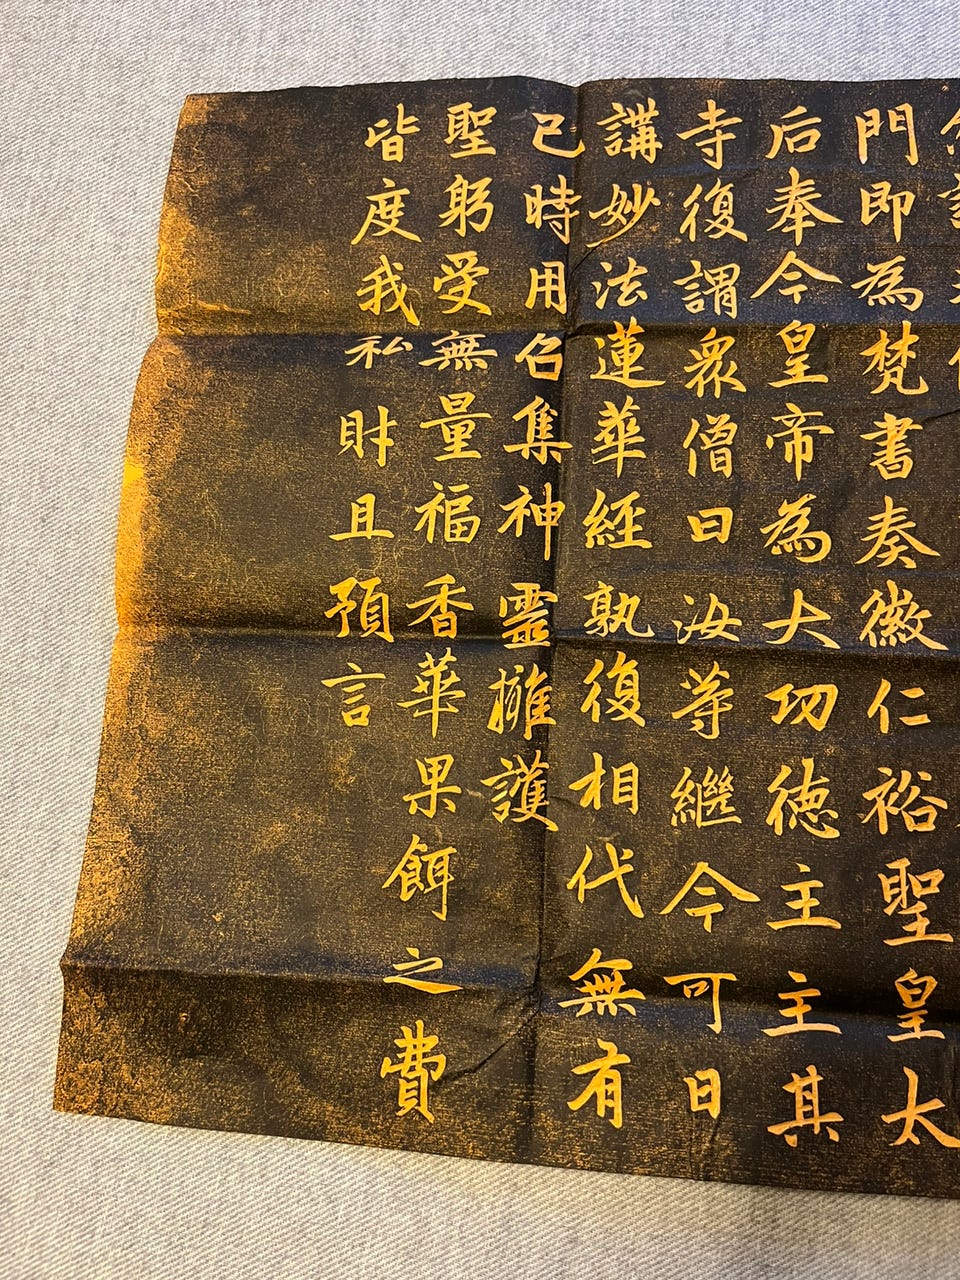 門即為梵書奏徽仁裕聖皇太
后奉今皇帝為大功德主主其
寺復謂眾僧曰汝等繼今可日
講妙法蓮華經孰復相代無有
已時用召集神靈擁護
聖躬受無量福香華果餌之費
皆度我私財且預言